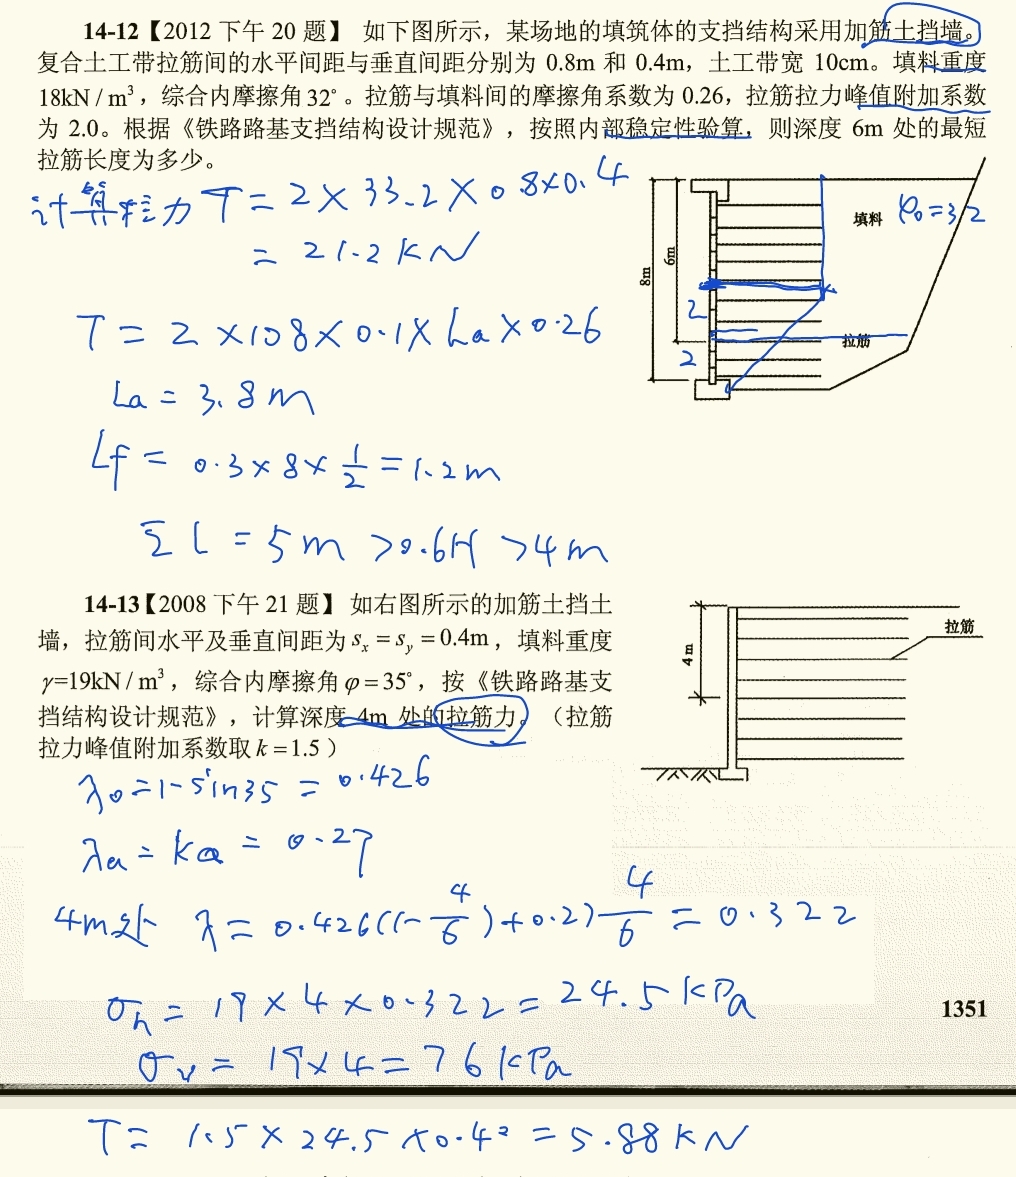 14-12【2012 下午 20 题】 如下图所示，某场地的填筑体的支挡结构采用加筋土挡墙。
复合土工带拉筋间的水平间距与垂直间距分别为 0.8m 和 0.4m，土工带宽 10cm。填料重度
18kN / m³，综合内摩擦角 32°。拉筋与填料间的摩擦角系数为 0.26，拉筋拉力峰值附加系数
为 2.0。根据《铁路路基支挡结构设计规范》，按照内部稳定性验算，则深度 6m 处的最短
拉筋长度为多少。
计算拉力 T = 2 × 33.2 × 0.8×0.4
= 21.2 KN
填料 φ₀=32
6m
8m
2
拉筋
2
T = 2 ×108× 0.1× La × 0.26
La = 3.8 m
Lf = 0.3 × 8 × 1/2 = 1.2m
Σ L = 5m >0.6H >4m
14-13【2008 下午 21 题】 如右图所示的加筋土挡土
墙，拉筋间水平及垂直间距为 sₓ = sᵧ = 0.4m，填料重度
γ=19kN / m³，综合内摩擦角 φ = 35°，按《铁路路基支
挡结构设计规范》，计算深度 4m 处的拉筋力。（拉筋
拉力峰值附加系数取 k =1.5）
拉筋
4 m
λ₀ = 1-sin35 = 0.426
λa = ka = 0.27
4m处 λ = 0.426(1-4/6)+0.27 4/6 = 0.322
σh = 19 × 4 × 0.322 = 24.5 KPa
1351
σv = 19×4 = 76 KPa
T = 1.5 × 24.5 ×0.4² = 5.88 KN